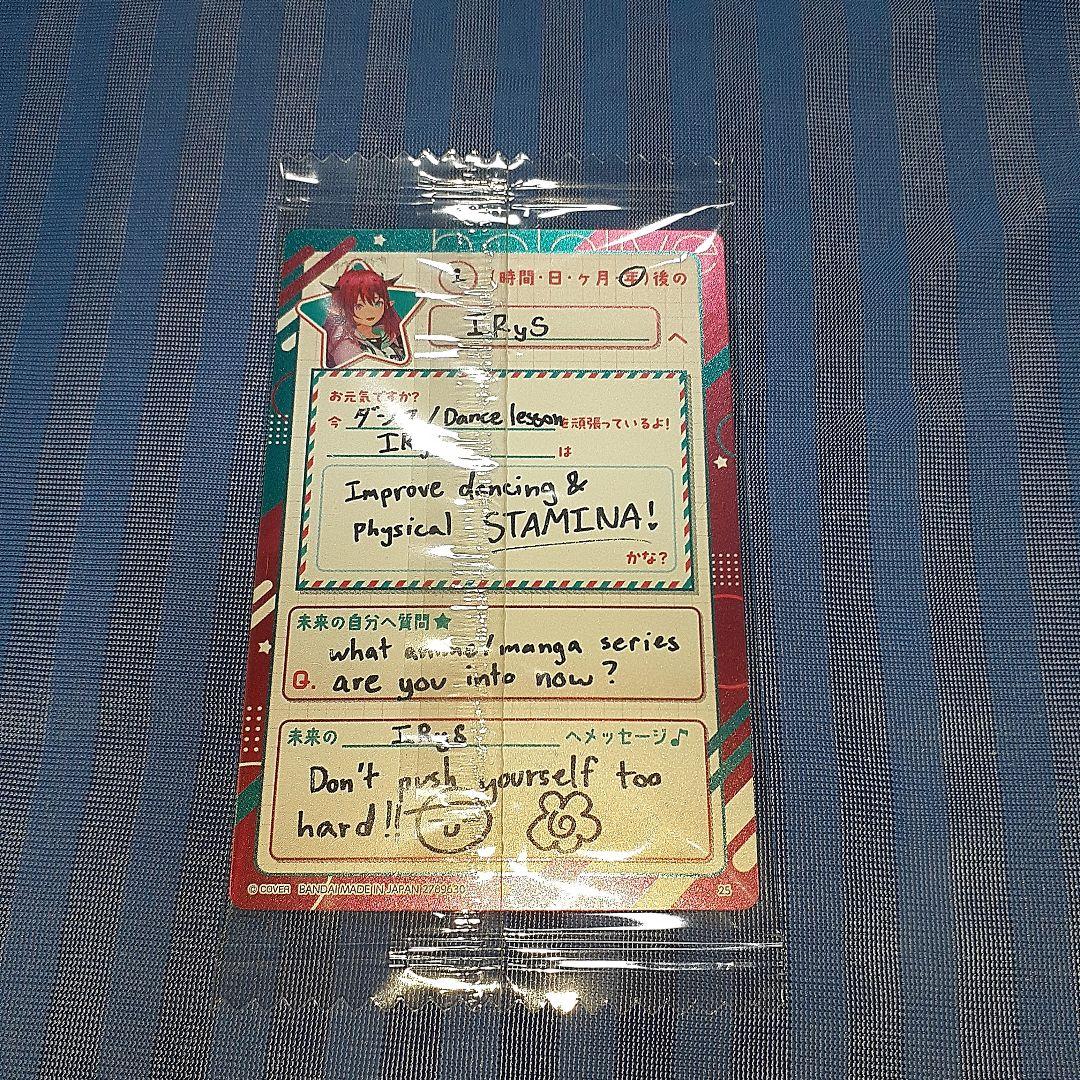 1 (時間・日・ヶ月・年)後の
IRyS へ
お元気ですか?
今 ダンス/Dance lesson を頑張っているよ!
IRyS は
Improve dancing &
physical STAMINA!
かな?
未来の自分へ質問★
what anime/manga series
Q. are you into now?
未来の IRyS へメッセージ♪
Don't push yourself too
hard!!
© COVER BANDAI MADE IN JAPAN 2769630 25